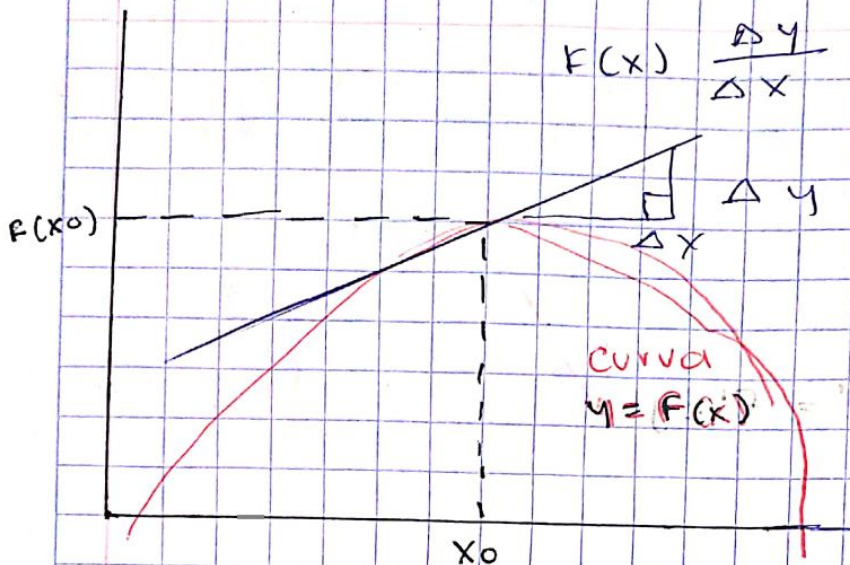 F(x) Δy
Δx
F(x0)
Δy
Δx
curva
y = F(x)
x0